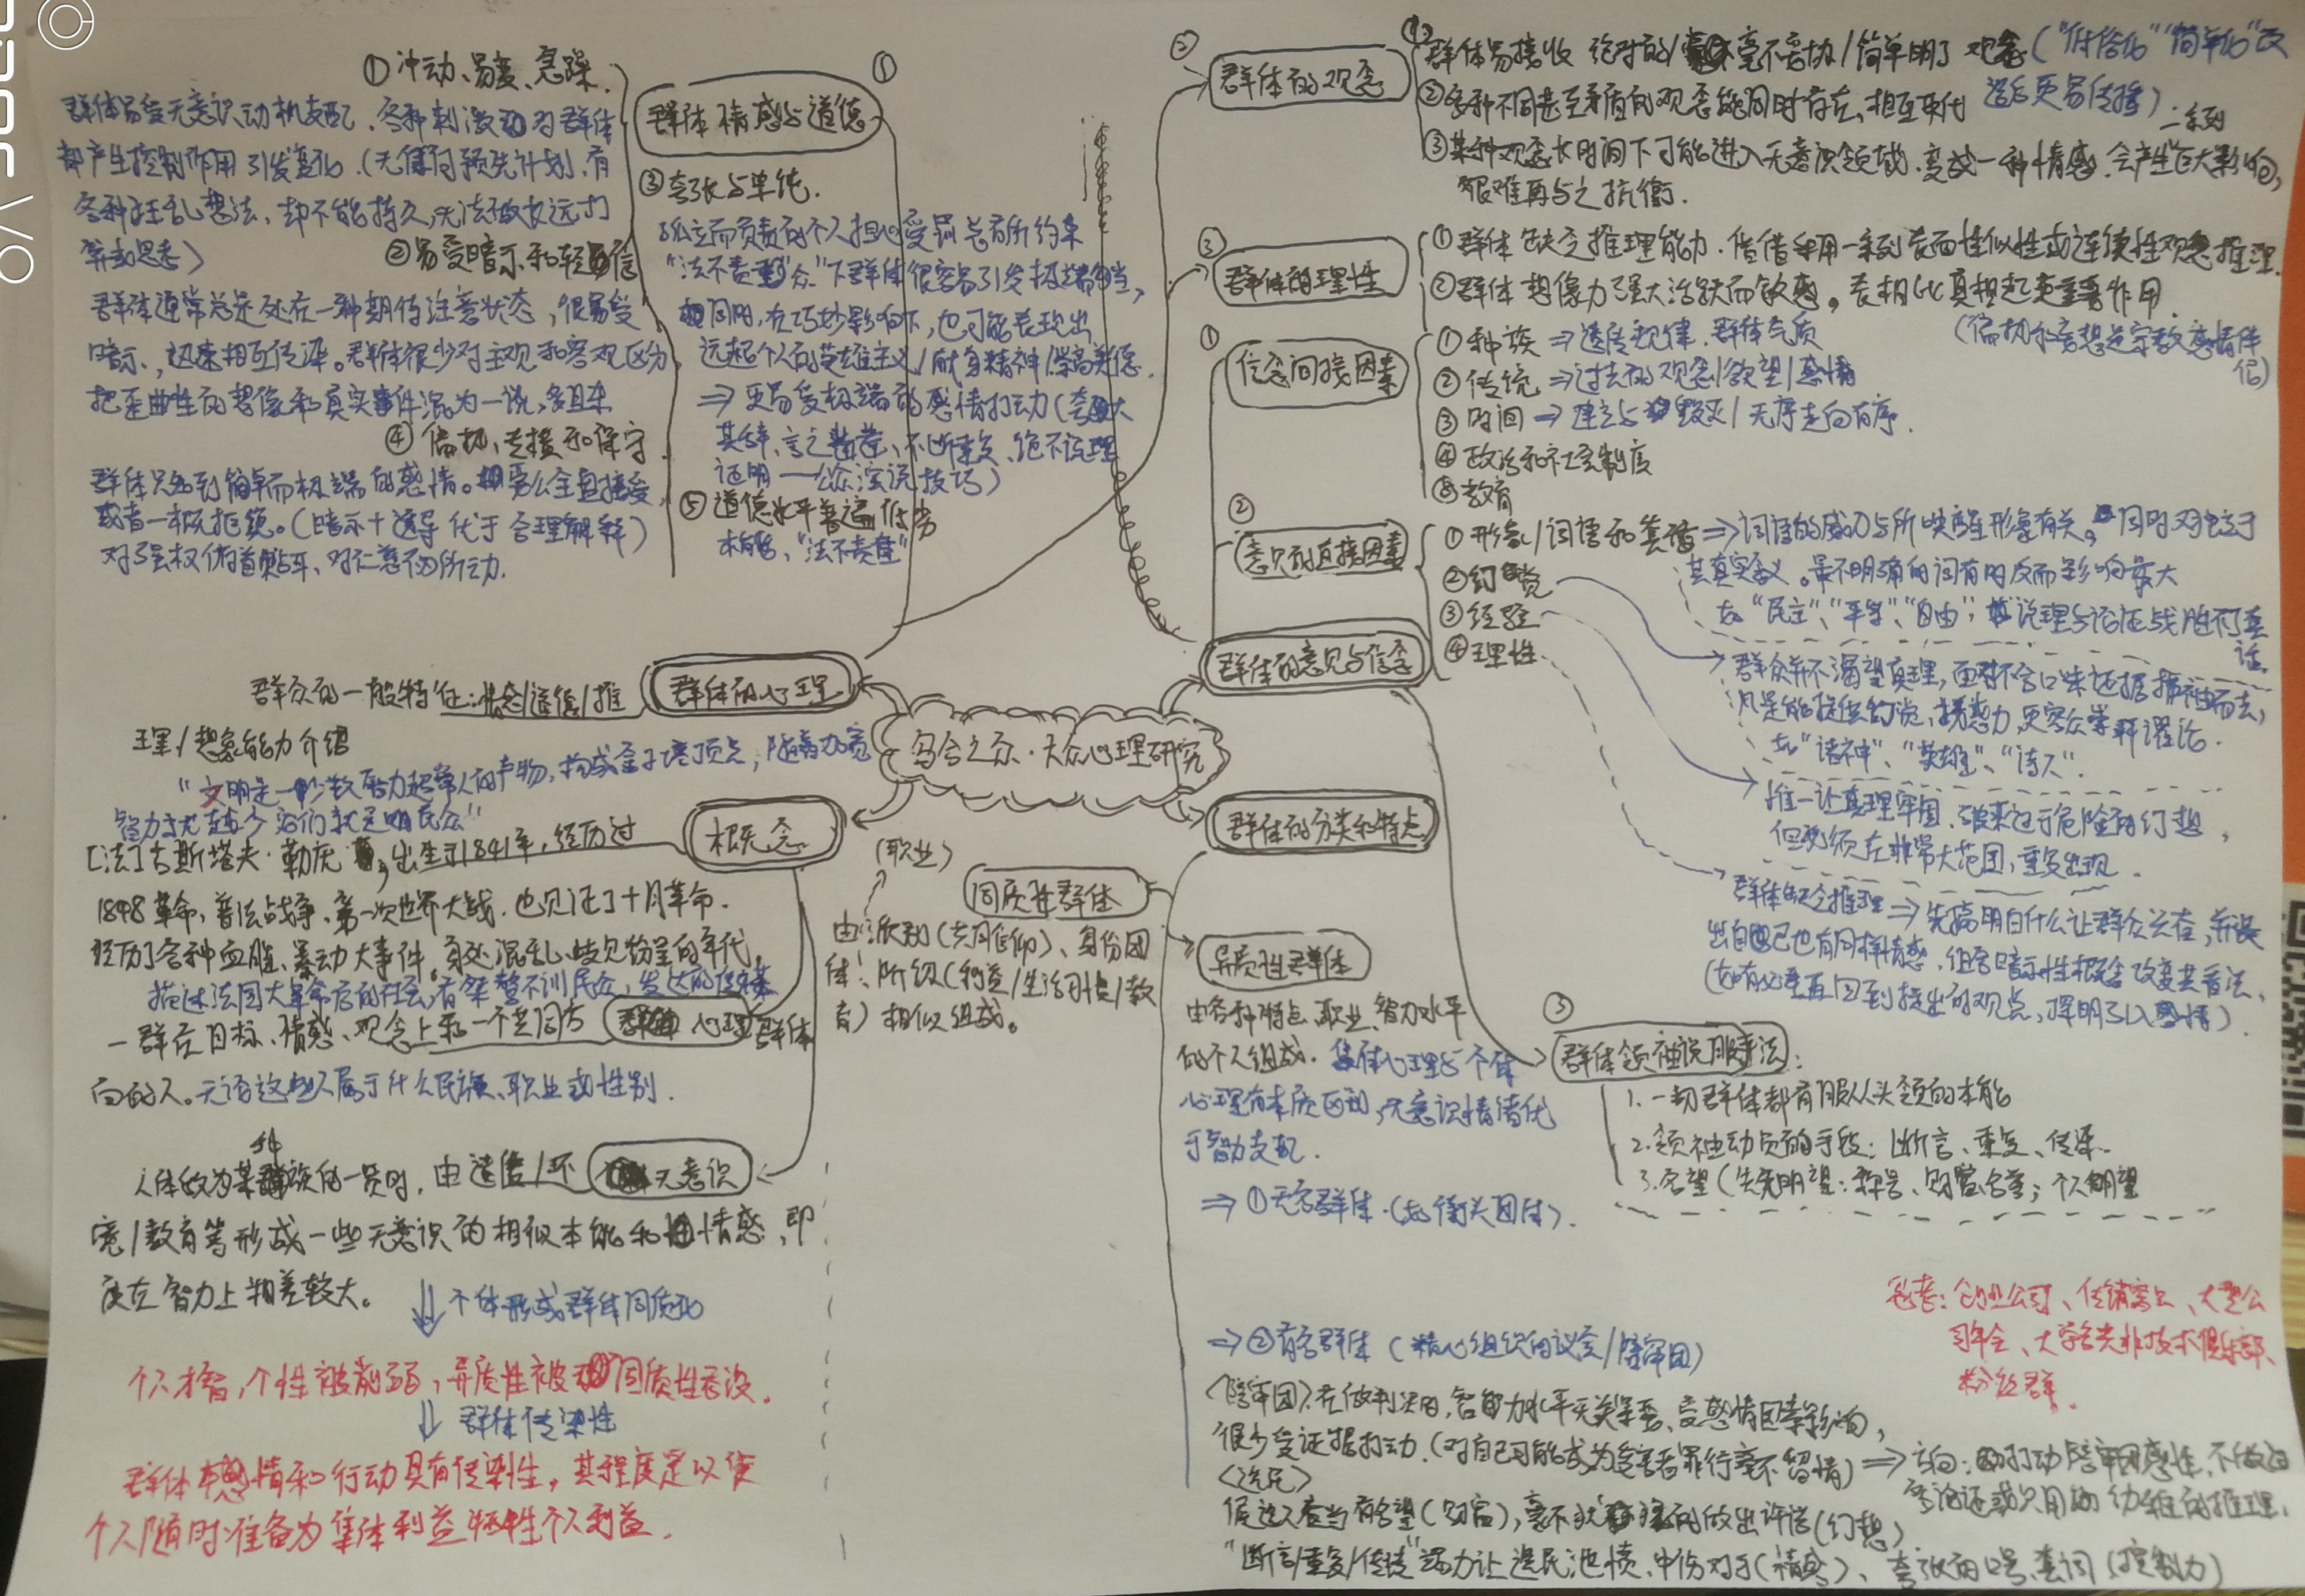 乌合之众·大众心理研究
群体的心理
群众的一般特征:状态/道德/推
理/想象能力介绍
①
群体情感与道德
①冲动、易变、急躁.
群体易受无意识动机支配,各种刺激对群体
都产生控制作用引发变化(无任何预先计划,有
各种狂乱想法,却不能持久,无法做长远打
算或思考)
②易受暗示和轻信
群体通常总是处在一种期待注意状态,很易受
暗示,迅速相互传染。群体很少对主观和客观区分,
把歪曲性的想像和真实事件混为一谈,多且杂
④偏执、专横和保守
群体只知到简单而极端的感情。要么全盘接受,
或者一概拒绝。(暗示+误导优于合理解释)
对强权俯首贴耳、对仁慈不为所动.
③夸张与单纯.
孤立而负责的个人担心受罚总有所约束
“法不责众”下群体很容易引发极端勾当,
同时,在巧妙影响下,也可能表现出
远超个人的英雄主义/献身精神/崇高美德.
⇒更易受极端的感情打动(夸大
其辞、言之凿凿、不断重复、绝不说理
证明——公众演说技巧)
⑤道德水平普遍低劣
本能、“法不责重”
②
群体的观念
①群体易接收 绝对的/毫不妥协/简单明了 观念(“低俗化”“简单化”改
造后更易传播)
②各种不同甚至矛盾的观念能同时存在、相互取代
③某种观念长时间下可能进入无意识领域.变成一种情感.会产生巨大影响,
艰难再与之抗衡.
二系列
③
群体的理性
①群体缺乏推理能力.借借利用一系列表面性似性或连续性观念推理.
②群体想像力强大活跃而敏感。表相比真相起更重要作用.
(偏执和妄想是宗教感情伴
侣)
①
信念间接因素
①种族⇒遗传规律.群体气质
②传统⇒过去的观念/欲望/感情
③时间⇒建立与毁灭/无序走向有序.
④政治和社会制度
⑤教育
②
意见的直接因素
①形象/词语和套话⇒词语的威力与所唤醒形象有关,同时对独立于
其真实含义。最不明确的词有时反而影响最大
如“民主”、“平等”、“自由”;说理与论证战胜不了套
话.
②幻觉
③经验
④理性
群体的意见与信念
群众并不渴望真理,面对不合口味证据拂袖而去,
凡是能提供幻觉、诱惑力,更容众崇拜谬论.
如“诸神”、“英雄”、“诗人”.
唯一让真理牢固、破来过于危险的幻想,
但必须在非常大范围,重复出现.
群体缺乏推理⇒先搞明白什么让群众兴奋,并装
出自己也有同样情感,组合暗示性概念改变其看法.
(如有必要再回到提出的观点,挥明引入感情).
③
群体领袖说服手法:
1.一切群体都有服从头领的本能
2.领袖动员的手段:断言、重复、传染.
3.名望(先天明望:称号、财富名誉;个人明望
概念
“文明是一少数智力超常人的产物,构成金子塔顶点;随着加宽
智力就越少它们就是民众”
[法]古斯塔夫·勒庞,出生于1841年,经历过
1848革命,普法战争,第一次世界大战.也见证了十月革命.
经历了各种血腥、暴动大事件。身处混乱、歧见纷呈的年代.
描述法国大革命后的社会,有桀骜不训民众,发达的传媒
心理群体
一群在目标、情感、观念上和一个共同方
向的人。无论这些人属于什么民族、职业或性别.
无意识
人体做为某种族的一员时,由遗传/环
境/教育等形成一些无意识的相似本能和情感,即
使在智力上相差较大。
⇓个体形成群体同质化
个人才智,个性被削弱,异质性被同质性吞没.
↓群体传染性
群体中感情和行动具有传染性,其程度足以使
个人随时准备为集体利益牺牲个人利益.
群体的分类和特点
同质性群体
(职业)
由:派别(共同信仰)、身份团
体!阶级(利益/生活习惯/教
育)相似组成。
异质性群体
由各种特点、职业、智力水平
的个人组成.集体心理与个体
心理有本质区别,无意识情绪优
于智力支配.
⇒①无名群体.(如街头团体).
⇒②有名群体(精心组织的议会/陪审团)
<陪审团>.在做判决时,智力水平无关紧要、受感情因素影响,
很少受证据打动.(对自己可能成为受害者罪行毫不留情)⇒方向:打动陪审团感性,不做过
多论证或只用幼稚的推理.
<选民>
候选人应当有名望(财富),毫不犹豫的做出许诺(幻想)
“断言/重复/传染”强力让选民池愤,中伤对于(精英)、夸张的口号、套词(控制力)
思考:创业公司、传销窝点、大型公
司年会、大学各类非技术俱乐部、
粉丝群.